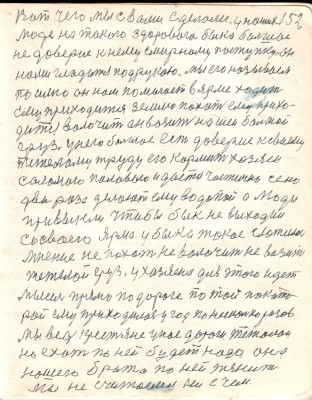 Вот чего мы с вами сделали. у наших 152
люде на такого здорового быка большое
не доверие к нему смирному поступку он
нами гладить под рукою. мы его называем
по силю он нам помагает в ярме ходит
ему приходится землю пахат ему прихо-
дится волочит он возит на шеи болшой
груз. у него болшое ест доверие к своему
тяжелому труду его кормит хозяен
саломою половою и даёт частично сено
два раза делают ему водопой о люди
привыкли чтобы бык не выходил
со своего ярма. у быка такое
мнение не пахат не волочит не возит
тяжелой груз, у хозяена для этого идет
мысел прямо по дороге по той по кото-
рой ему приходилося у год по несколко разов
мы вед крестяне у нас дороги
но ехат по ней будет надо она
нашего брата по ней тянит
мы не считаемся ни с чем.